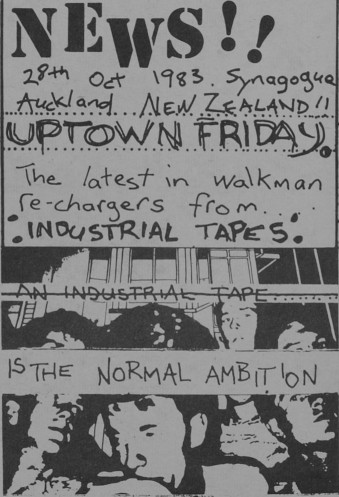 NEWS!!
28th Oct 1983. Synagogue
Auckland NEW ZEALAND!!
UPTOWN FRIDAY.
The latest in walkman
re-chargers from....
INDUSTRIAL TAPES.
AN INDUSTRIAL TAPE........
IS THE NORMAL AMBITION